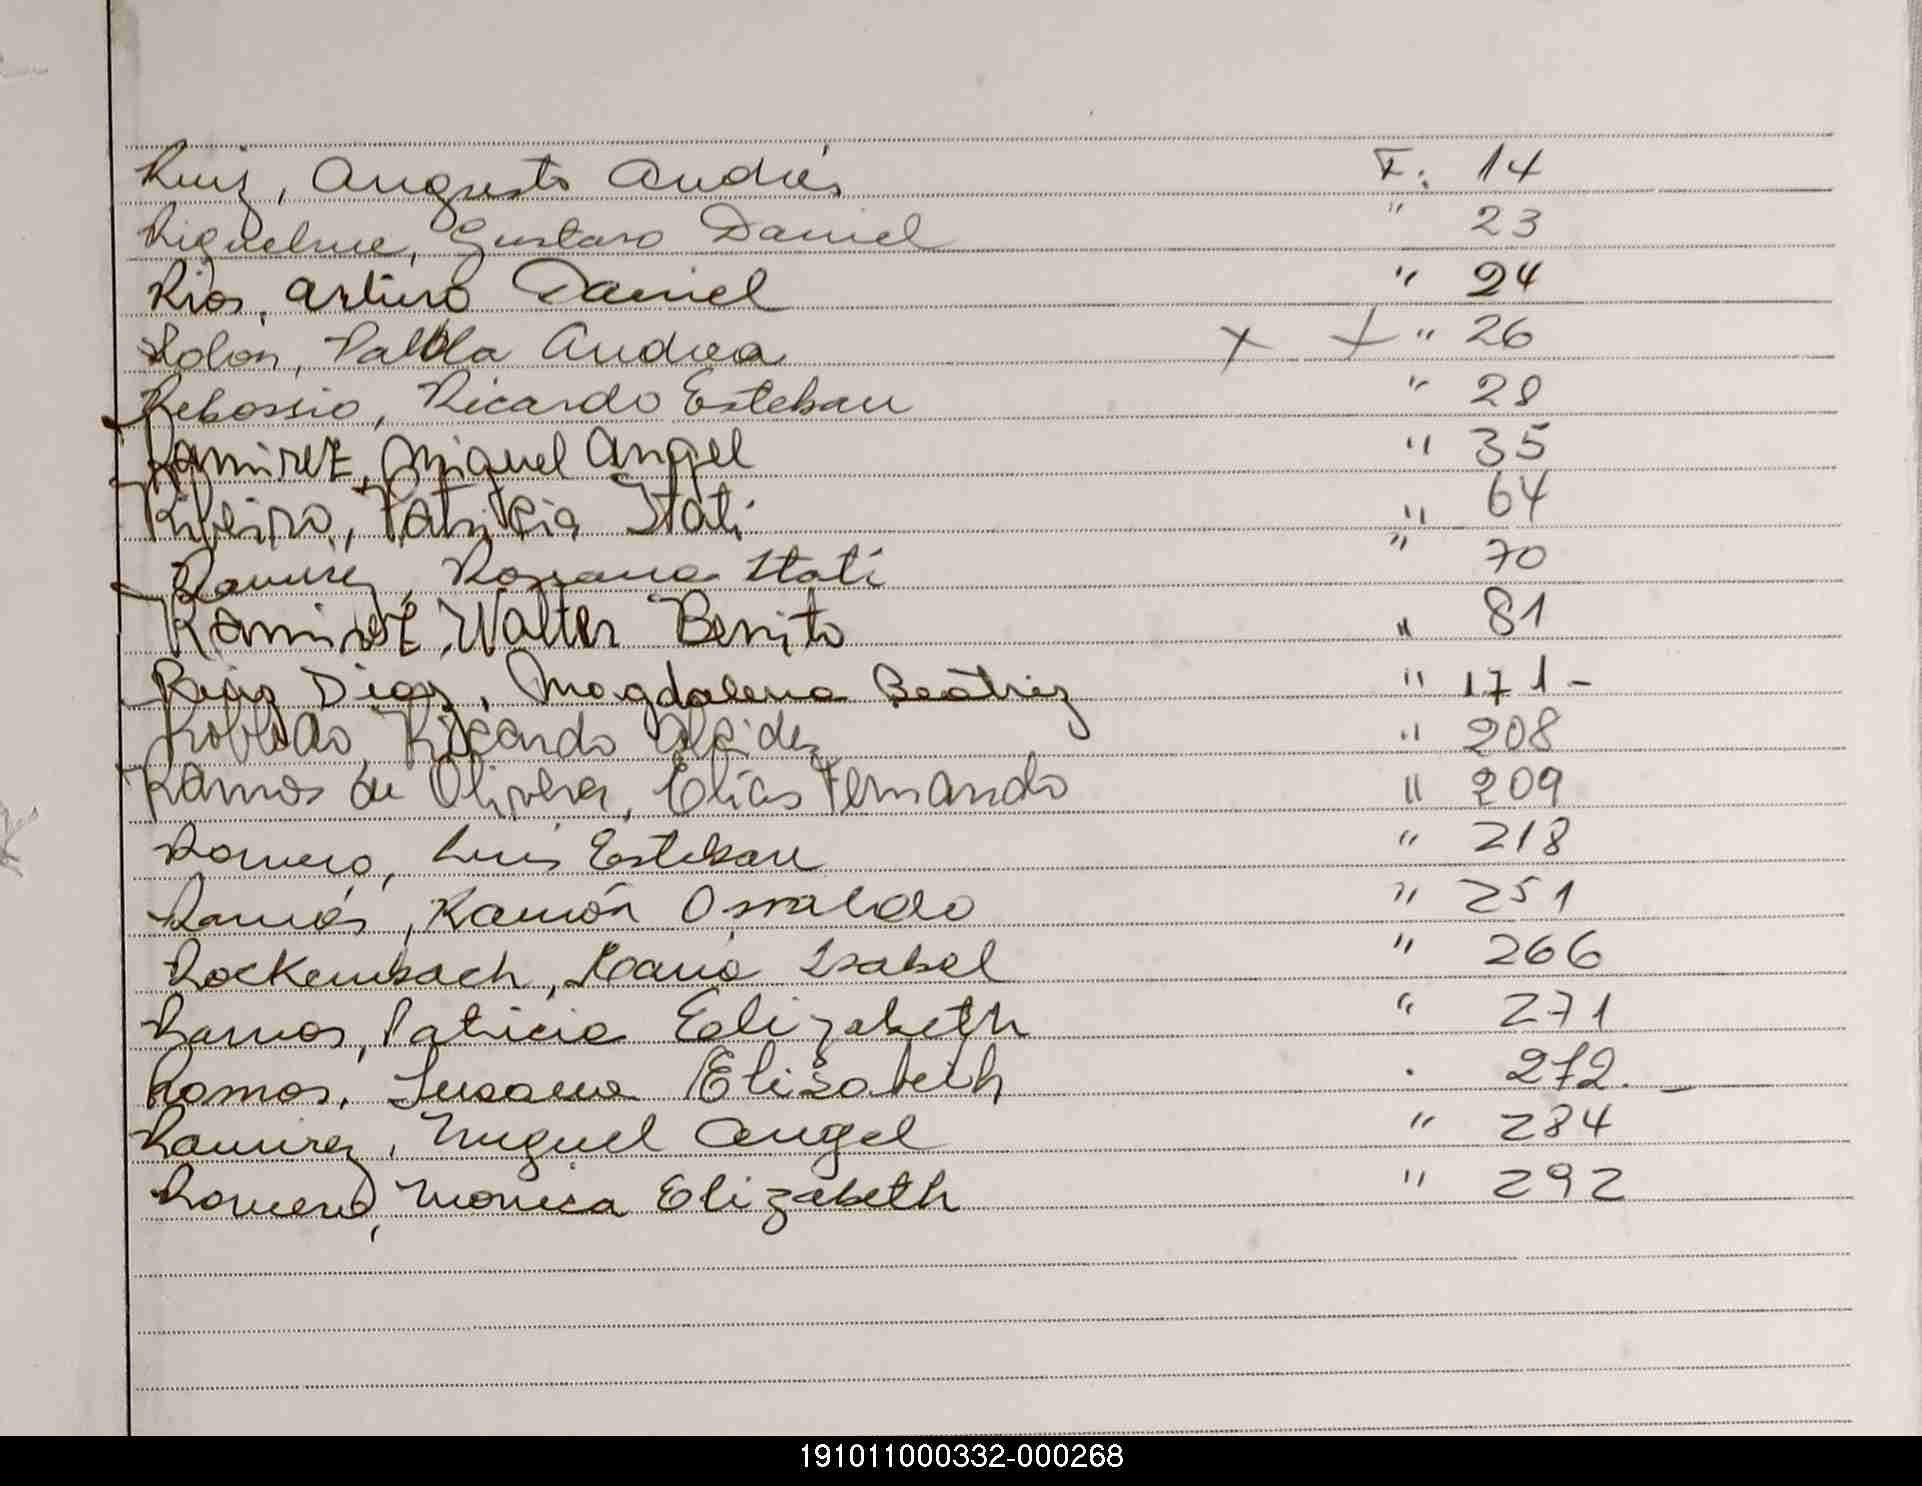 Ruiz, Augusto Andrés F. 14
Riquelme, Gustavo Daniel " 23
Rios, Arturo Daniel " 24
Rolon, Paola Andrea x x " 26
Rebossio, Ricardo Esteban " 28
Ramirez, Miguel Angel " 35
Ribeiro, Patricia Itati " 64
Ramirez, Rossana Itati " 70
Ramirez, Walter Benito " 81
Diaz, Magdalena Beatriz " 171-
Robledo, Ricardo Alcidez " 208
Ramos de Olivera, Elías Fernando " 209
Romero, Luis Esteban " 218
Ramós, Ramón Osvaldo " 251
Rockembach, María Isabel " 266
Ramos, Patricia Elizabeth " 271
Ramos, Susana Elizabeth . 272. -
Ramirez, Miguel Angel " 284
Romero, Monica Elizabeth " 292
191011000332-000268